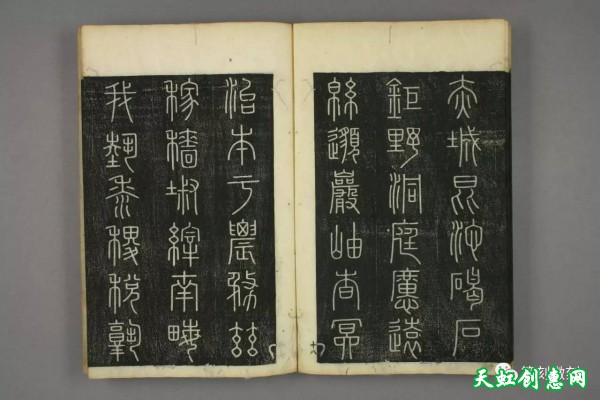 赤城昆池碣石
鉅野洞庭曠遠
緜邈巖岫杳冥
治本於農務茲
稼穡俶載南畝
我藝黍稷稅熟
天虹创意网